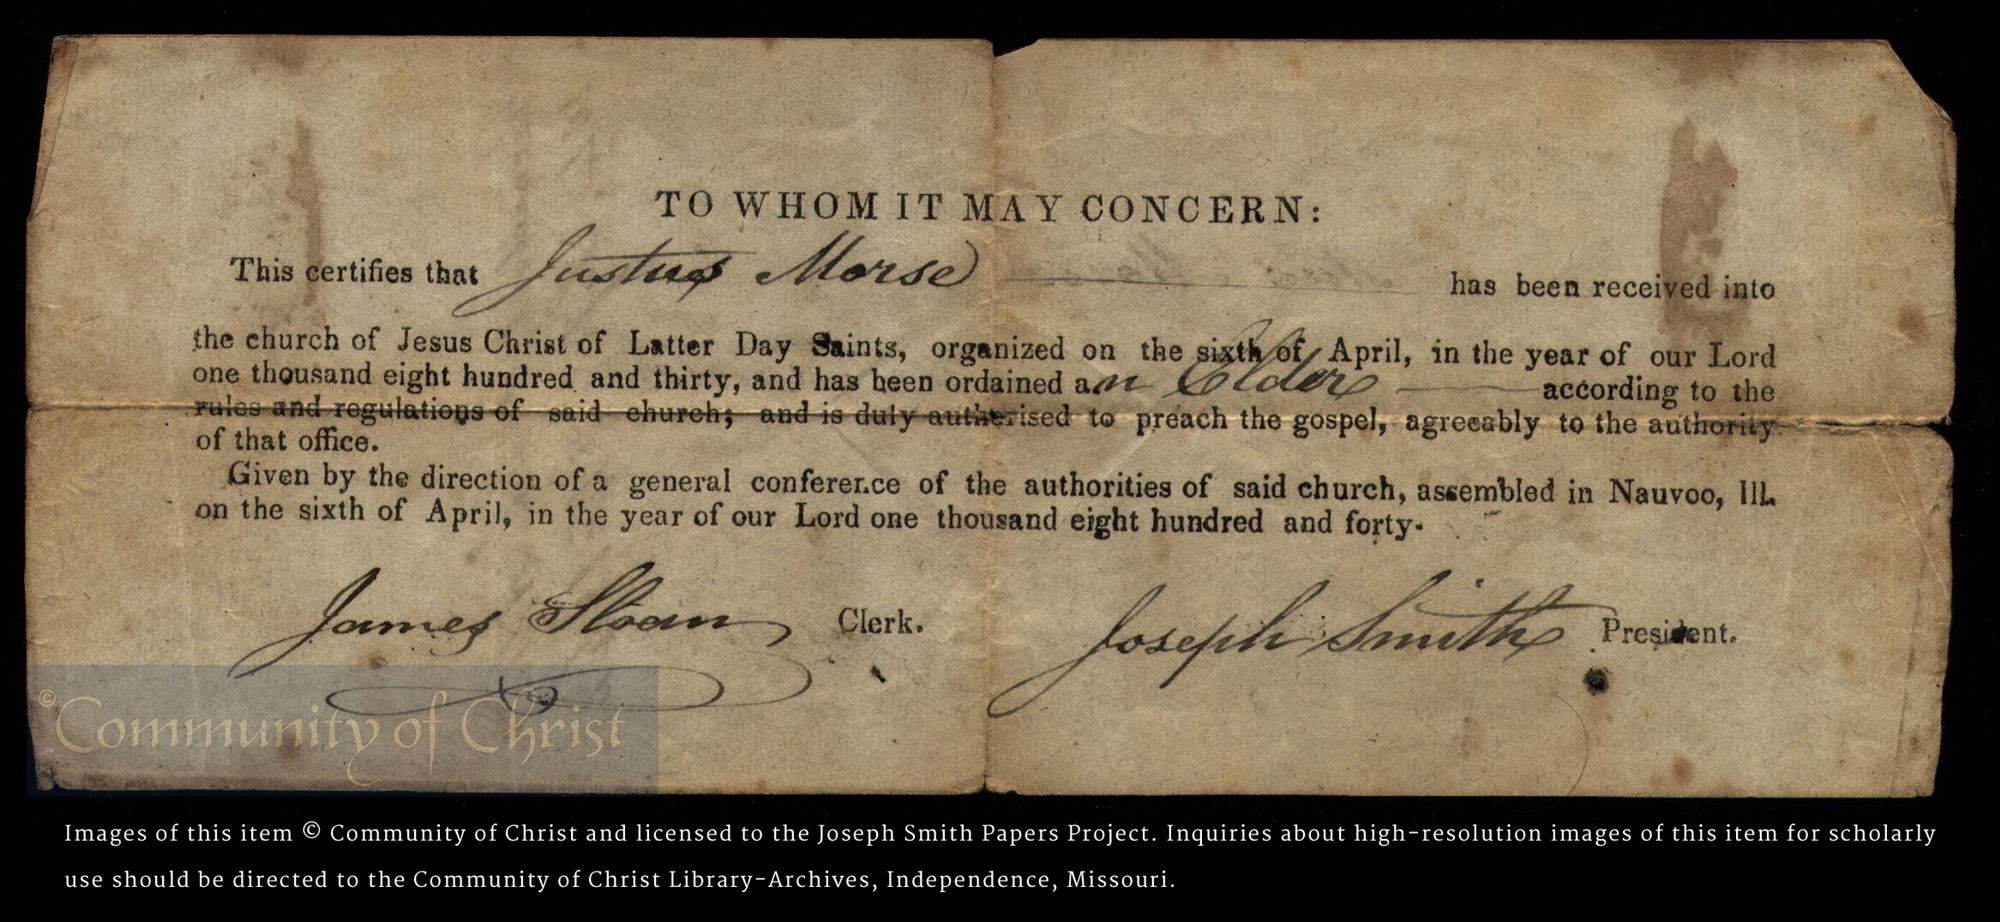 TO WHOM IT MAY CONCERN:
This certifies that Justus Morse has been received into
the church of Jesus Christ of Latter Day Saints, organized on the sixth of April, in the year of our Lord
one thousand eight hundred and thirty, and has been ordained an Elder according to the
rules and regulations of said church; and is duly authorised to preach the gospel, agreeably to the authority
of that office.
Given by the direction of a general conference of the authorities of said church, assembled in Nauvoo, Ill.
on the sixth of April, in the year of our Lord one thousand eight hundred and forty.
James Sloan Clerk. Joseph Smith President.
© Community of Christ
Images of this item © Community of Christ and licensed to the Joseph Smith Papers Project. Inquiries about high-resolution images of this item for scholarly
use should be directed to the Community of Christ Library-Archives, Independence, Missouri.